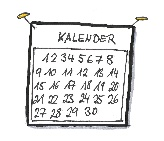 KALENDER
1 2 3 4 5 6 7 8
9 10 11 12 13 14
15 16 17 18 19 20
21 22 23 24 25 26
27 28 29 30